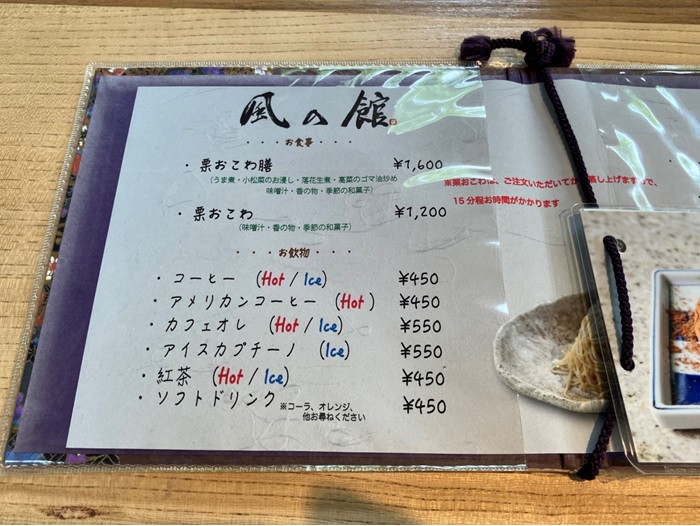 風の館
・・・お食事・・・
・栗おこわ膳 ¥1,600
(うま煮・小松菜のお浸し・落花生煮・高菜のゴマ油炒め
味噌汁・香の物・季節の和菓子)
・栗おこわ ¥1,200
(味噌汁・香の物・季節の和菓子)
・・・お飲物・・・
・コーヒー (Hot / Ice) ¥450
・アメリカンコーヒー (Hot) ¥450
・カフェオレ (Hot / Ice) ¥550
・アイスカプチーノ (Ice) ¥550
・紅茶 (Hot / Ice) ¥450
・ソフトドリンク ※コーラ、オレンジ、 ¥450
他お尋ねください
※栗おこわは、ご注文いただいてか 蒸し上げます で、
15分程お時間がかかります